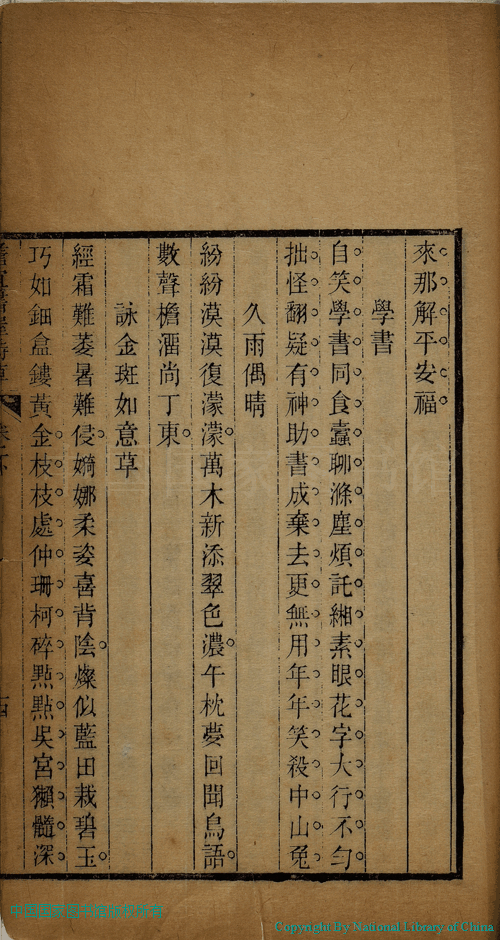 來那解平安福
學書
自笑學書同食蠹聊滌塵煩託緗素眼花字大行不勻
拙怪翻疑有神助書成棄去更無用年年笑殺中山兔
久雨偶晴
紛紛漠漠復濛濛萬木新添翠色濃午枕夢回聞鳥語
數聲檐溜尚丁東
詠金斑如意草
經霜難萎暑難侵嫋娜柔姿喜背陰燦似藍田栽碧玉
巧如鈿盒鏤黃金枝枝處仲珊柯碎點點吳宮獺髓深
Copyright By National Library of China